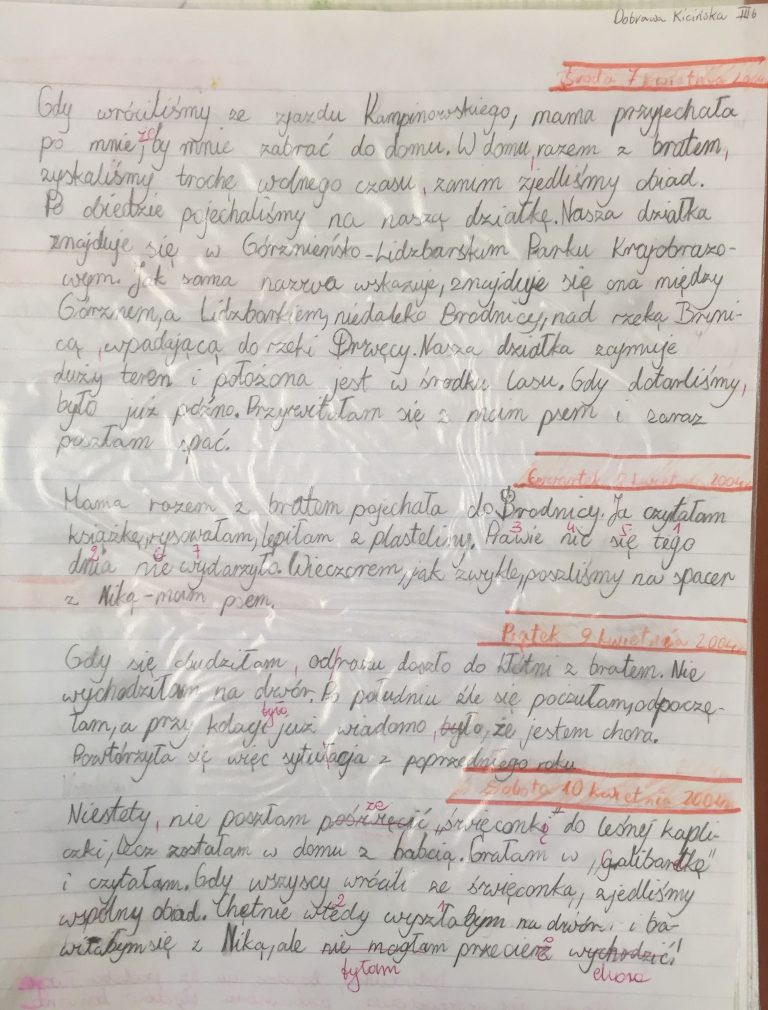 Dobrawa Kicińska III b
Środa 7 kwietnia 2004
Gdy wróciliśmy ze zjazdu Kampinowskiego, mama przyjechała
ze
po mnie, by mnie zabrać do domu. W domu, razem z bratem,
zyskaliśmy trochę wolnego czasu, zanim zjedliśmy obiad.
Po obiedzie pojechaliśmy na naszą działkę. Nasza działka
znajduje się w Górznieńsko-Lidzbarskim Parku Krajobrazo-
wym. Jak sama nazwa wskazuje, znajduje się ona między
Górznem, a Lidzbarkiem, niedaleko Brodnicy, nad rzeką Bryni-
cą, wpadającą do rzeki Drwęcy. Nasza działka zajmuje
duży teren i położona jest w środku lasu. Gdy dotarliśmy,
było już późno. Przywitałam się z mym psem i zaraz
poszłam spać.
Czwartek 8 kwietnia 2004
Mama razem z bratem pojechała do Brodnicy. Ja czytałam
książkę, rysowałam, lepiłam z plasteliny. Prawie nic się tego
3 4 5 1
dnia nie wydarzyło. Wieczorem, jak zwykle, poszliśmy na spacer
2 6 7
z Niką - mym psem.
Piątek 9 kwietnia 2004
Gdy się obudziłam, od razu doszło do kłótni z bratem. Nie
wychodziłam na dwór. Po południu źle się poczułam, odpoczę-
było
łam, a przy kolacji już wiadomo było, że jestem chora.
Powtórzyła się więc sytuacja z poprzedniego roku.
Sobota 10 kwietnia 2004
ze
Niestety, nie poszłam poświęcić „święconkę" do leśnej kapli-
czki, lecz zostałam w domu z babcią. Grałam w „Galibardkę"
i czytałam. Gdy wszyscy wrócili ze święconką, zjedliśmy
2 1
wspólny obiad. Chętnie wtedy wyszłabym na dwór i ba-
wiłabym się z Niką, ale nie mogłam przecież wychodzić!
byłam chora